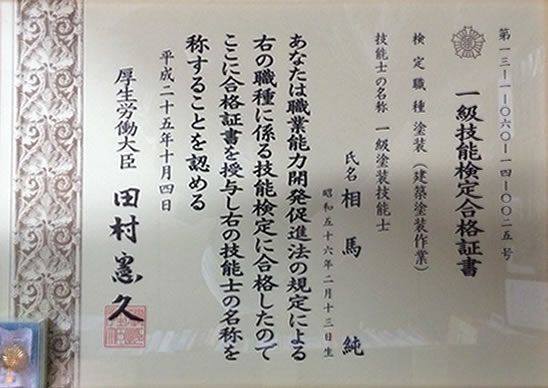 第一三ー一ー〇六〇ー一四ー〇〇二五号
一級技能検定合格証書
検定職種 塗装(建築塗装作業)
技能士の名称 一級塗装技能士
氏名 相馬 純
昭和五十六年二月十三日生
あなたは職業能力開発促進法の規定による
右の職種に係る技能検定に合格したので
ここに合格証書を授与し右の技能士の名称を
称することを認める
平成二十五年十月四日
厚生労働大臣 田村憲久